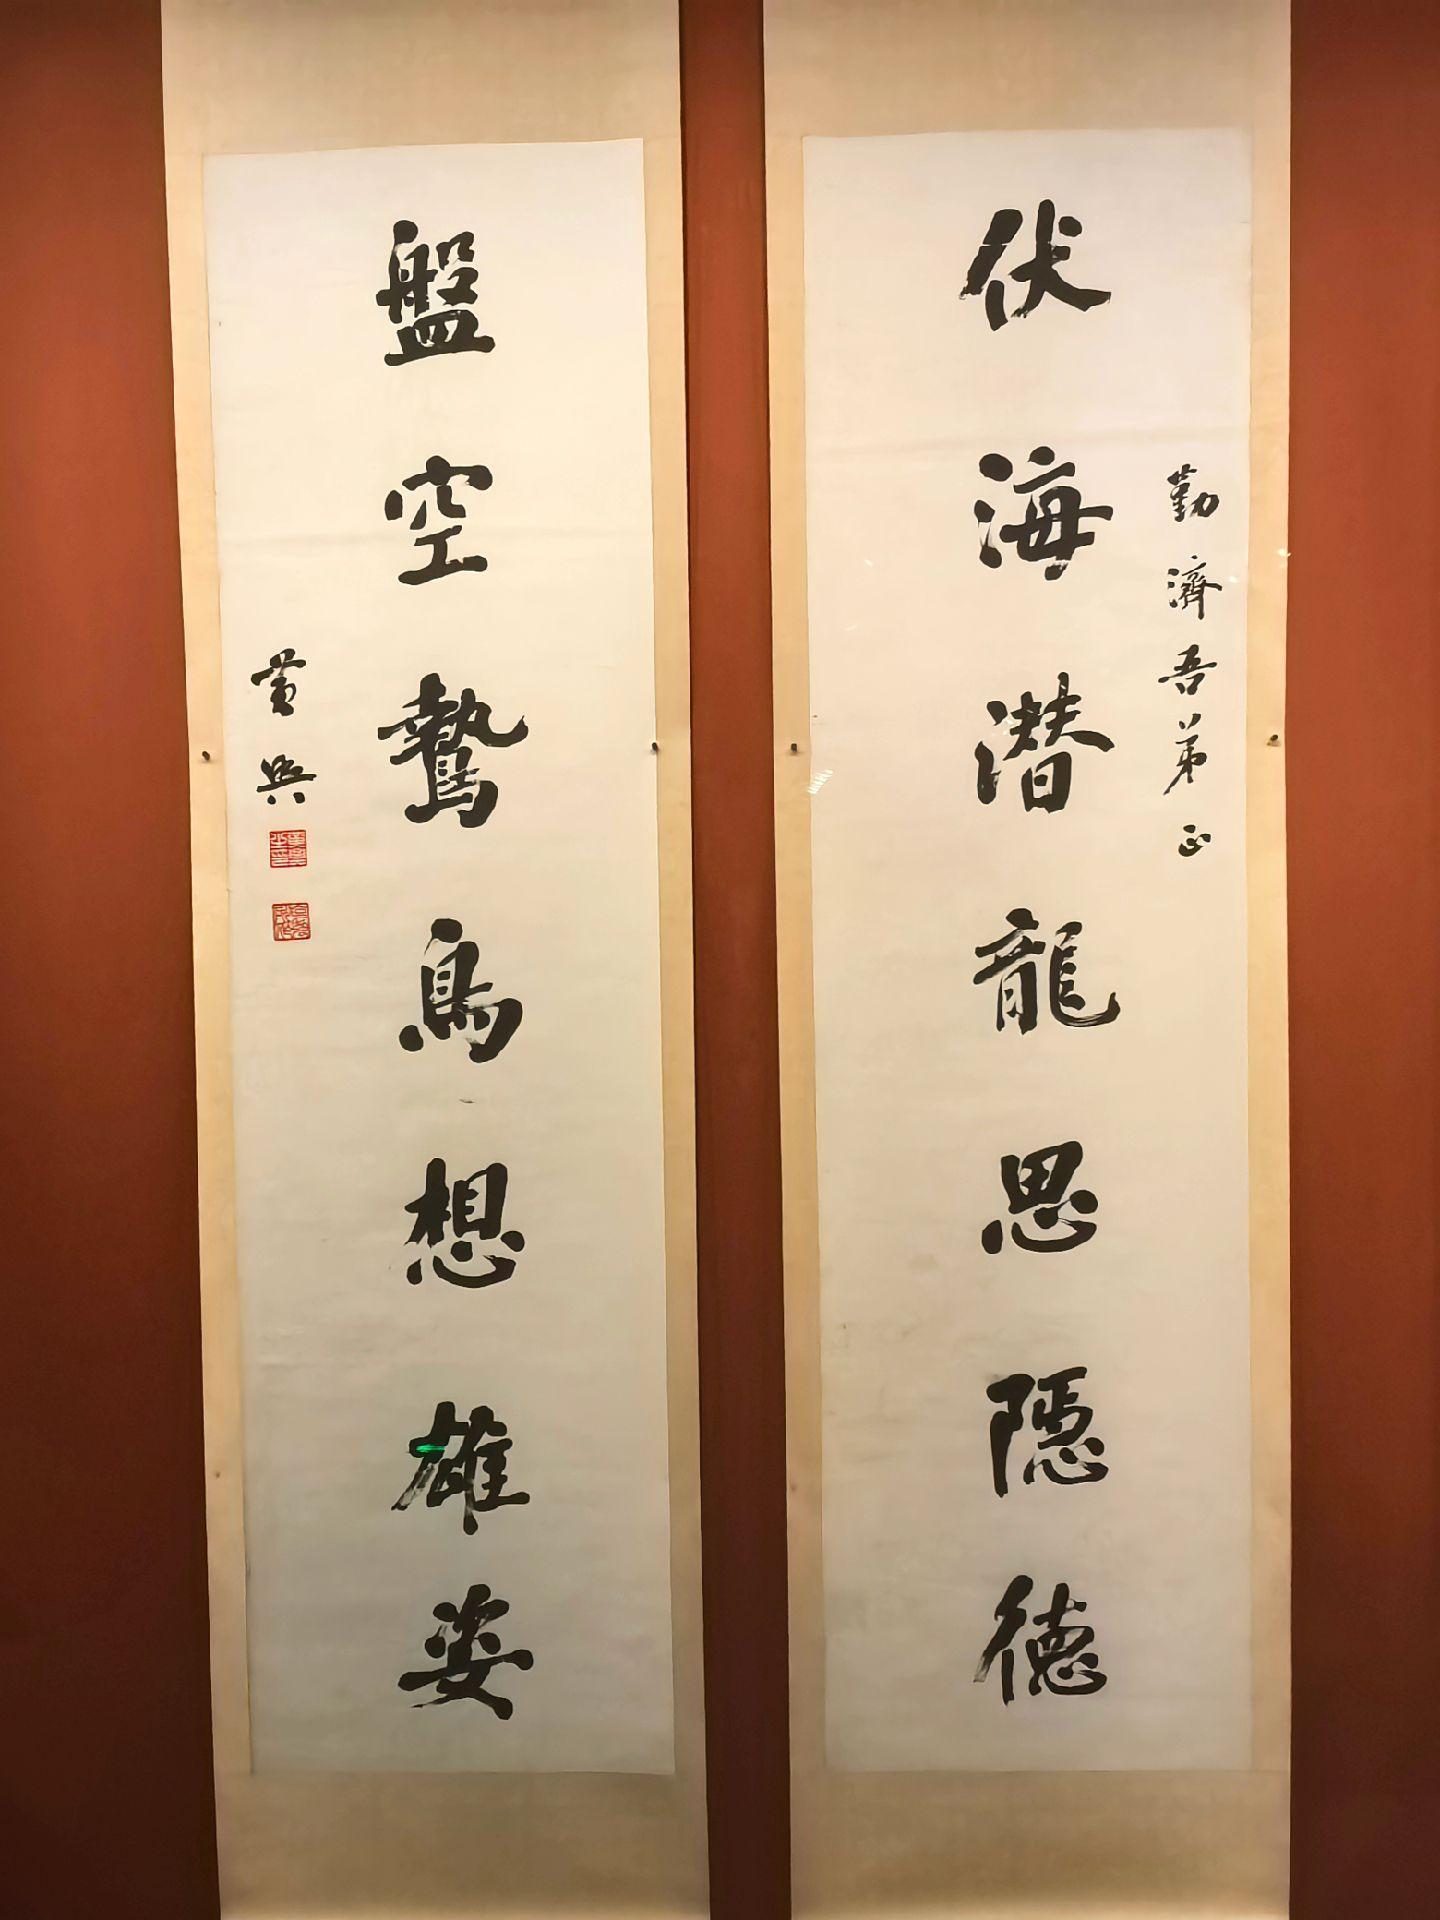 勤濟吾弟正
伏海潛龍思隱德
盤空鷙鳥想雄姿
黃興